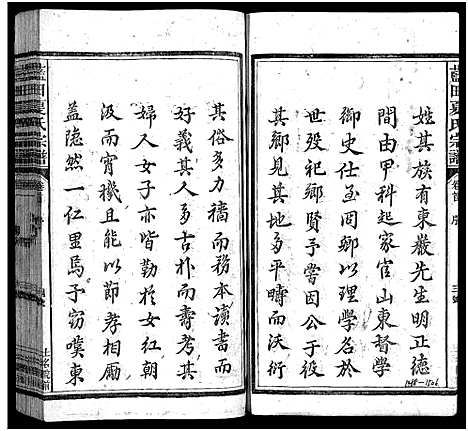 藍田夏氏宗譜
卷首
序
姓其族有東巖先生明正德
間由甲科起家官山東督學
御史仕至同卿以理學名於
世歿祀鄉賢予嘗因公于役
其鄉見其地多平疇而沃衍
其俗多力穡而務本讀書而
好義其人多古朴而壽考其
婦人女子亦皆勤於女紅朝
汲而宵機且能以節孝相勵
蓋隐然一仁里焉予竊嘆東
藍田夏氏宗譜
卷首
序